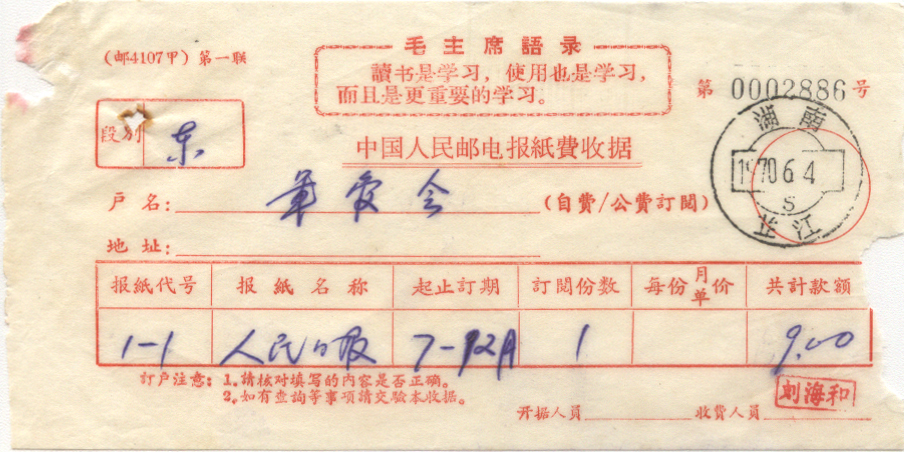 (邮4107甲) 第一联
毛主席語录
讀书是学习，使用也是学习，
而且是更重要的学习。
第 0002886 号
段别 东
中国人民邮电报紙費收据
湖南
1970.6.4
S
芷江
户名: 革委会 (自費/公費訂閱)
地址:
报紙代号 报紙名称 起止訂期 訂閱份数 每份月单价 共計款額
1-1 人民日报 7-12月 1 9.00
訂户注意: 1.請核对填写的内容是否正确。
2.如有查詢等事項請交驗本收据。
开据人員 收費人員 刘海和